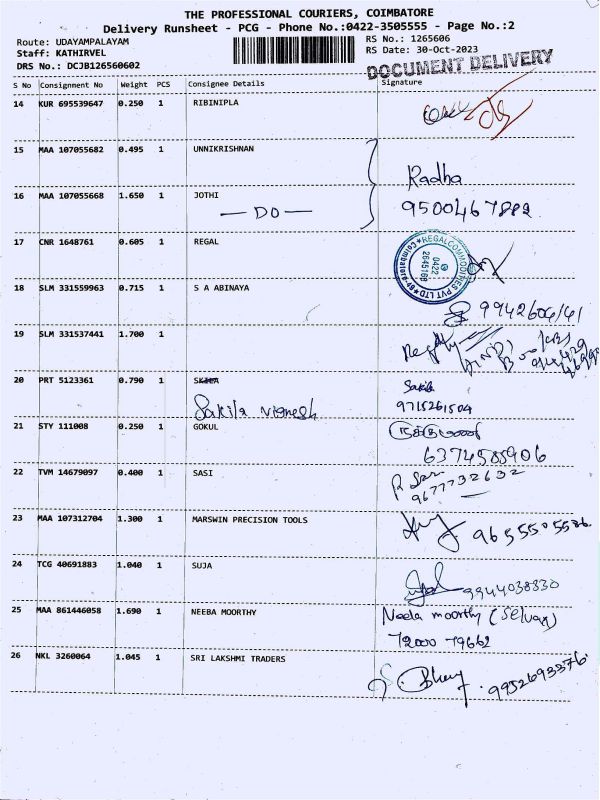 THE PROFESSIONAL COURIERS, COIMBATORE
Delivery Runsheet - PCG - Phone No.:0422-3505555 - Page No.:2
Route: UDAYAMPALAYAM
Staff: KATHIRVEL
DRS No.: DCJB126560602
RS No.: 1265606
RS Date: 30-Oct-2023
DOCUMENT DELIVERY
S No Consignment No Weight PCS Consignee Details Signature
14 KUR 695539647 0.250 1 RIBINIPLA
15 MAA 107055682 0.495 1 UNNIKRISHNAN
Radha
16 MAA 107055668 1.650 1 JOTHI
— DO —
9500467882
17 CNR 1648761 0.605 1 REGAL
REGAL COMMODITIES PVT LTD
Coimbatore
0422
2645168
18 SLM 331559963 0.715 1 S A ABINAYA
9942604141
19 SLM 331537441 1.700 1
20 PRT 5123361 0.790 1
Sakila vignesh
Sakila
9715261504
21 STY 111008 0.250 1 GOKUL
6374585906
22 TVM 14679097 0.400 1 SASI
9677732632
23 MAA 107312704 1.300 1 MARSWIN PRECISION TOOLS
9655505586
24 TCG 40691883 1.040 1 SUJA
9944038830
25 MAA 861446058 1.690 1 NEEBA MOORTHY
Neela moorthy (Selvan)
72000 79662
26 NKL 3260064 1.045 1 SRI LAKSHMI TRADERS
9952693376